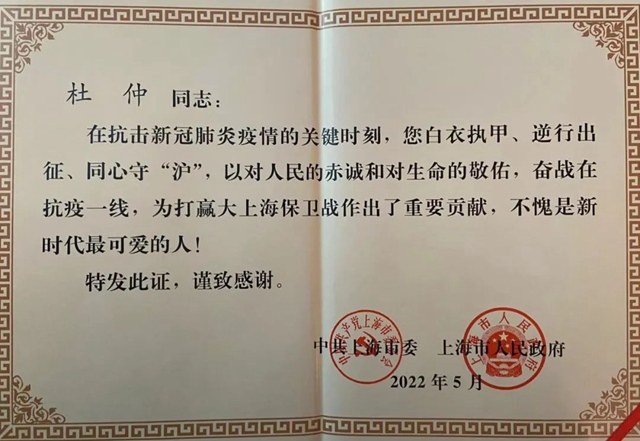 杜仲 同志：
在抗击新冠肺炎疫情的关键时刻，您白衣执甲、逆行出
征、同心守“沪”，以对人民的赤诚和对生命的敬佑，奋战在
抗疫一线，为打赢大上海保卫战作出了重要贡献，不愧是新
时代最可爱的人！
特发此证，谨致感谢。
中共上海市委 上海市人民政府
中国共产党上海市委员会
上海市人民政府
2022年5月